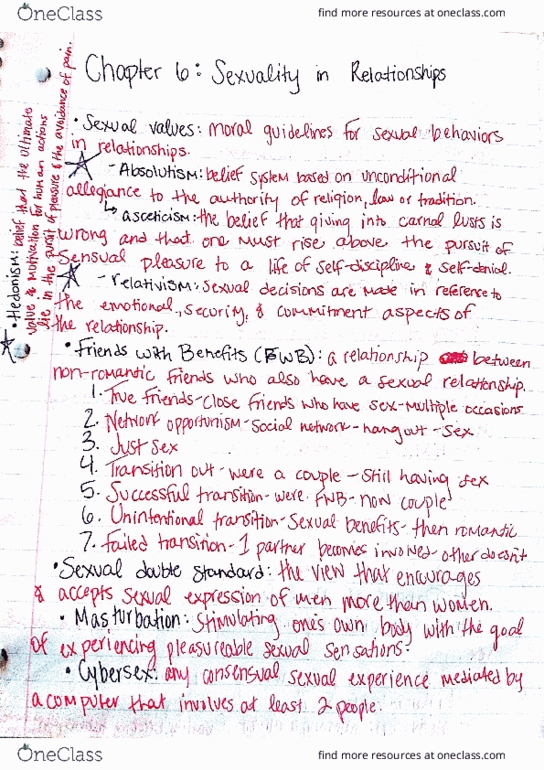 OneClass
find more resources at oneclass.com
Chapter 6: Sexuality in Relationships
• Sexual values: moral guidelines for sexual behaviors
in relationships.
- Absolutism: belief system based on unconditional
allegiance to the authority of religion, law or tradition.
↳ asceticism: the belief that giving into carnal lusts is
wrong and that one must rise above the pursuit of
sensual pleasure to a life of self-discipline & self-denial.
- relativism: sexual decisions are made in reference to
the emotional, security, & commitment aspects of
the relationship.
• Hedonism: belief that the ultimate
value & motivation for human actions
lie in the pursuit of pleasure & the avoidance of pain.
• Friends with Benefits (FWB): a relationship between
non-romantic friends who also have a sexual relationship.
1. True friends-close friends who have sex-multiple occasions
2. Network opportunism-social network-hangout-sex
3. Just sex
4. Transition out-were a couple-still having sex
5. Successful transition-were FWB-now couple
6. Unintentional transition-sexual benefits-then romantic
7. Failed transition-1 partner becomes involved-other doesn't
• Sexual double standard: the view that encourages
& accepts sexual expression of men more than women.
• Masturbation: stimulating one's own body with the goal
of experiencing pleasureable sexual sensations.
• Cybersex: any consensual sexual experience mediated by
a computer that involves at least 2 people.
OneClass
find more resources at oneclass.com